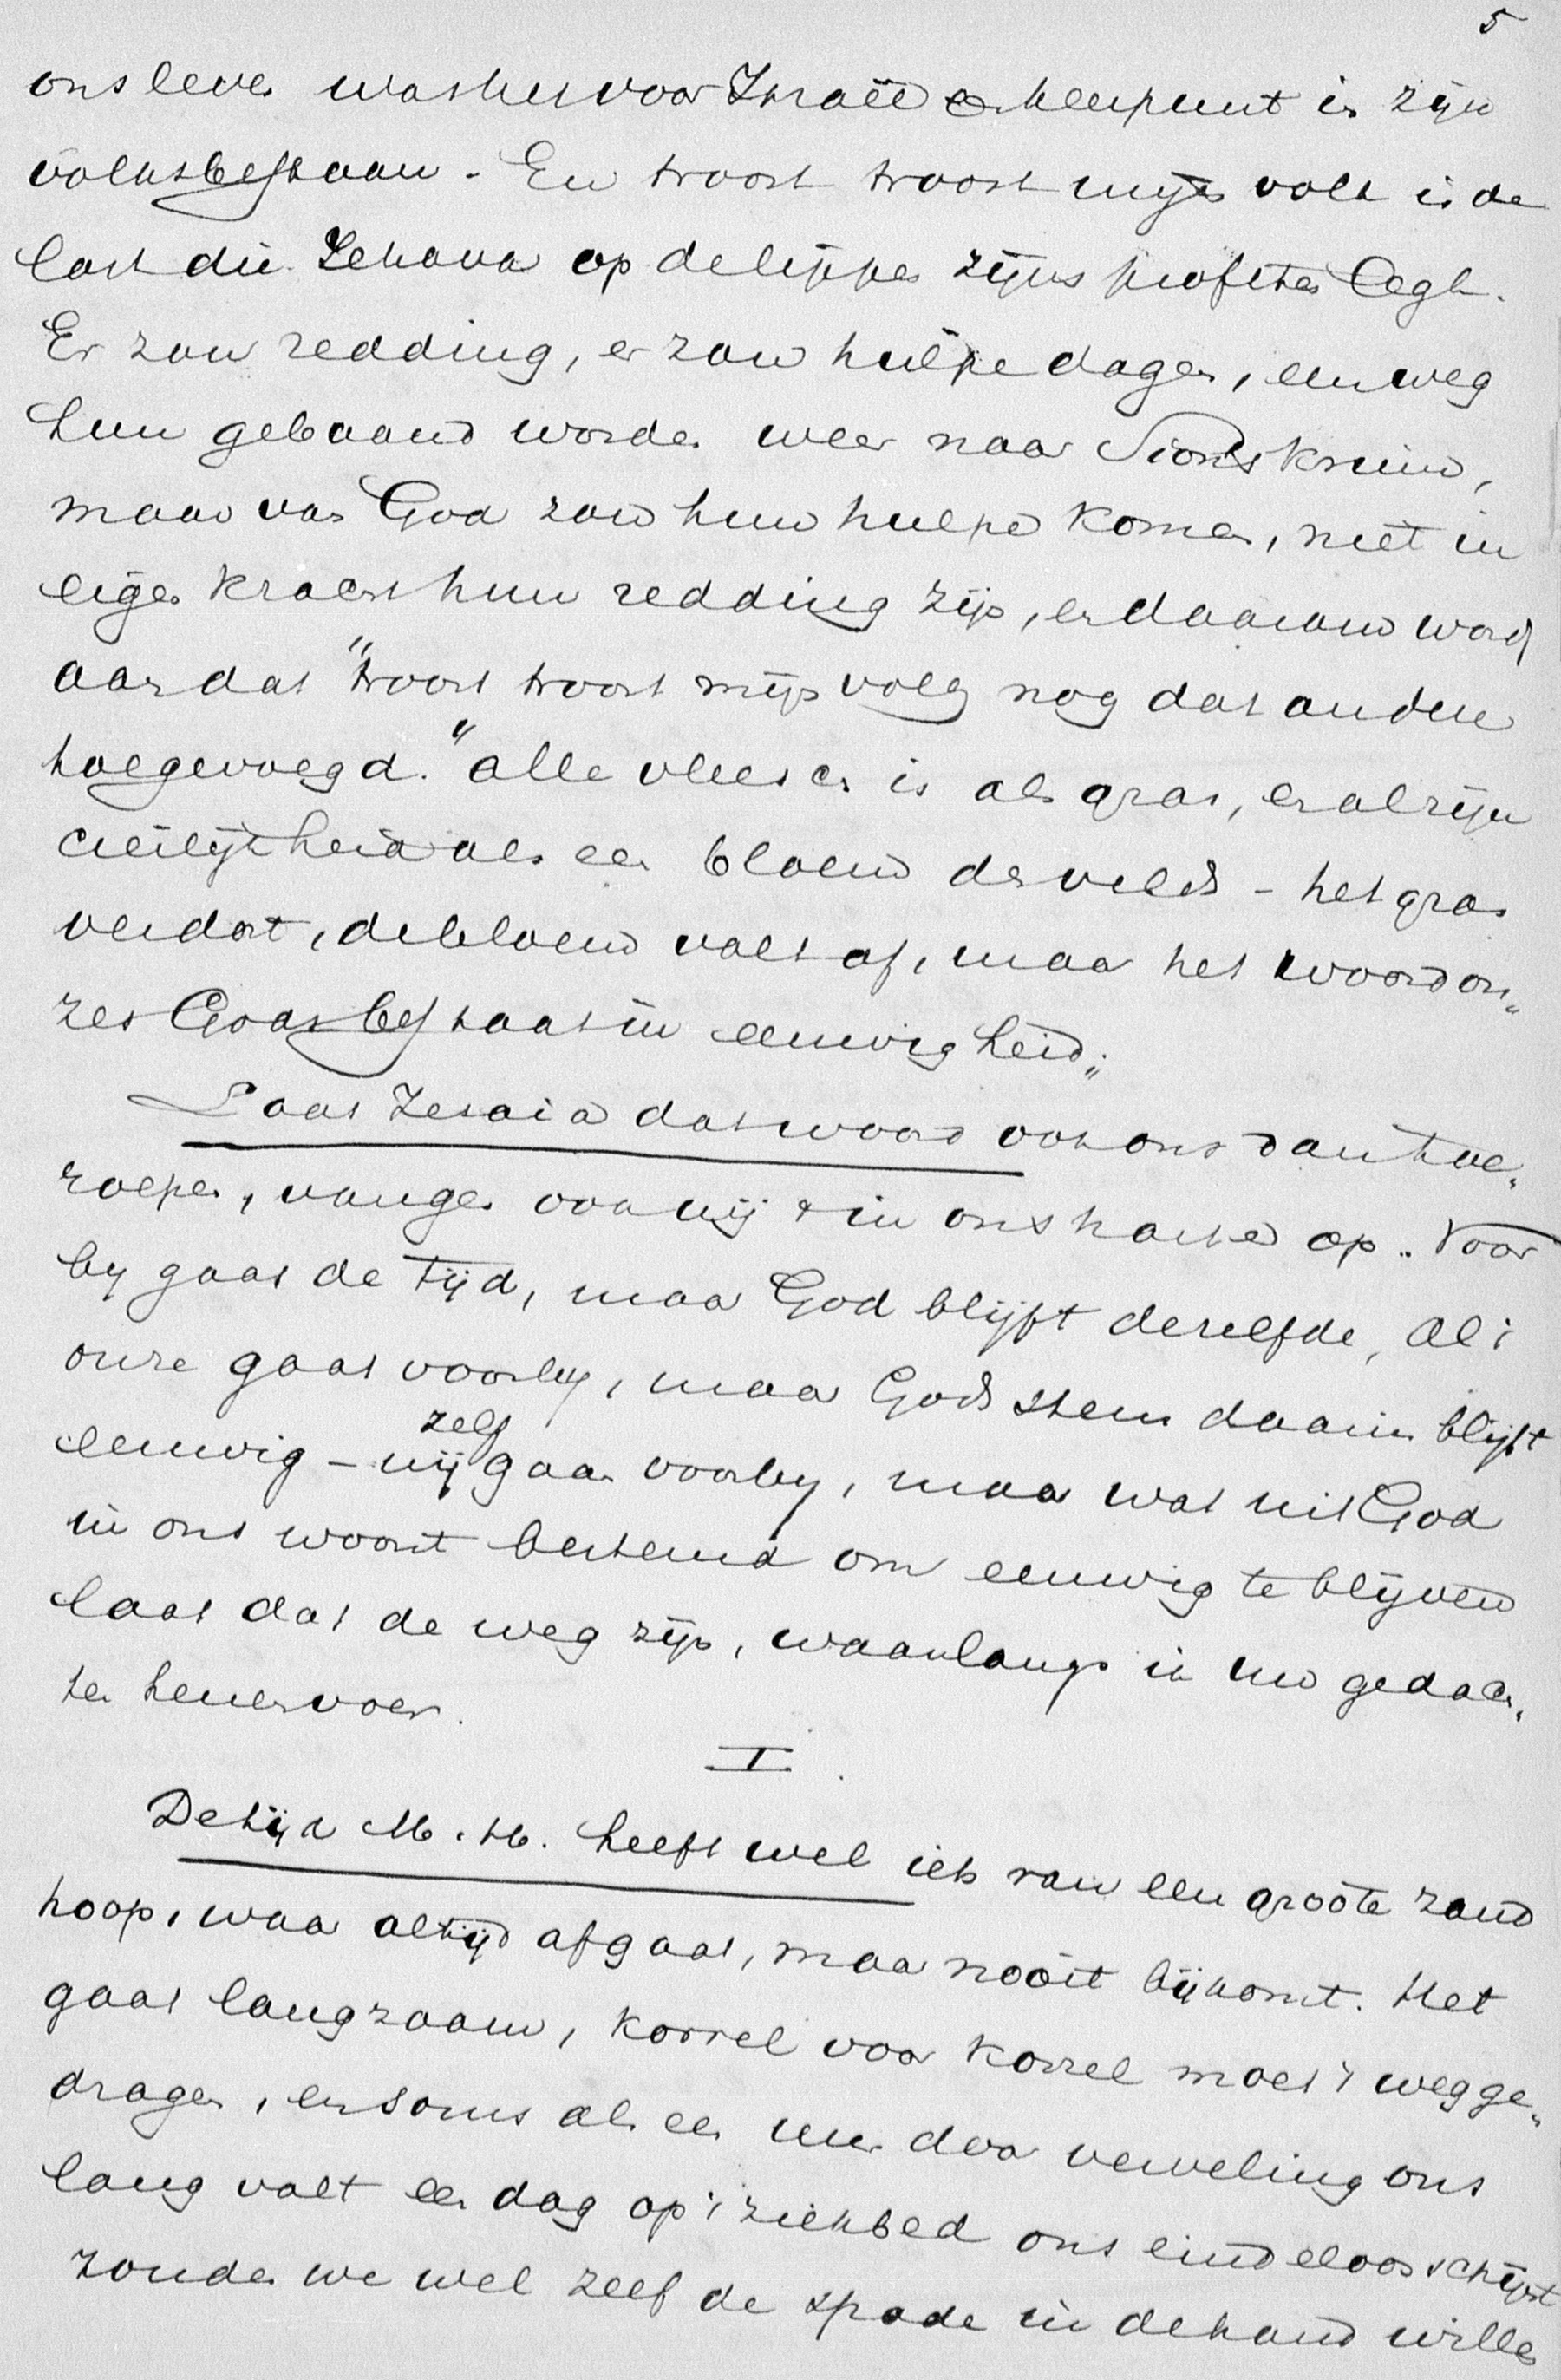 5
ons leven was het voor Israël een keerpunt in zijn
volksbestaan. En troost troost mijn volk is de
last die Jehova op de lippen zijns profeten legt.
Er zou redding, er zou hulpe dagen, een weg
hun gebaand worden weer naar Sions kruin,
maar van God zou hun hulpe komen, niet in
eigen kracht hun redding zijn, en daarom word
aan dat "troost troost mijn volk nog dat andere
toegevoegd. "alle vleesch is als gras, en al zijn
cierlijkheid als een bloem des velds - het gras
verdort, de bloem valt af, maar het woord on„
zes Gods bestaat in eeuwigheid„.
Laat Jesaia dat woord ook ons dan toe„
roepen, vangen ook wij 't in ons harte op. Voor
by gaat de tijd, maar God blijft dezelfde, al 't
onze gaat voorby, maar Gods stem daarin blijft
eeuwig - wij zelf gaan voorby, maar wat uit God
in ons woont bestemd om eeuwig te blijven
laat dat de weg zijn, waarlangs ik uw gedach„
ten henenvoer.
I.
De tijd M. H. heeft wel iets van een groote zand
hoop, waar altijd afgaat, maar nooit bijkomt. Het
gaat langzaam, korrel voor korrel moet 't wegge„
dragen, en soms als een uur door verveling ons
lang valt een dag op 't ziekbed ons eindeloos schijnt
zouden we wel zelf de spade in de hand willen